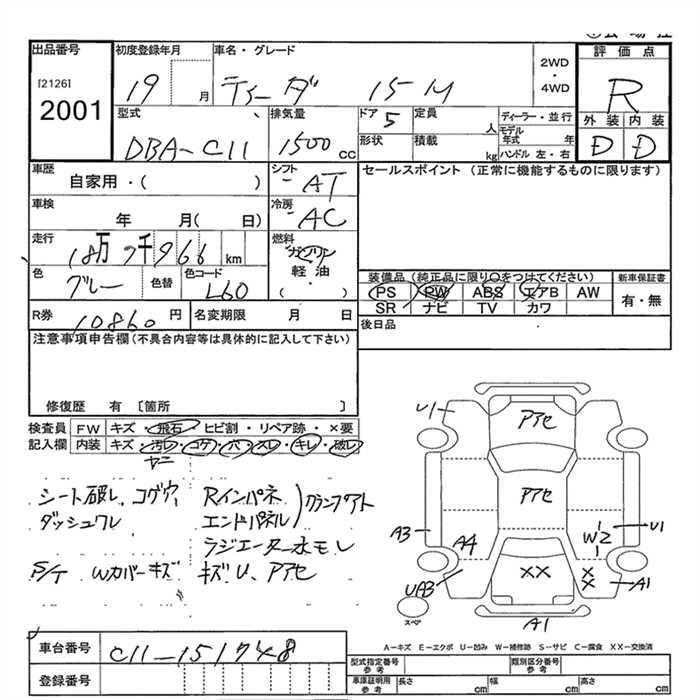 出品番号
[2126]
2001
初度登録年月
19 月
車名・グレード
ティーダ 15M
2WD
・
4WD
評価点
R
外装 内装
D D
型式
DBA-C11
排気量
1500 cc
ドア
5
定員
人
形状
積載
kg
ディーラー・並行
モデル年式 年
ハンドル 左・右
車歴
自家用・( )
シフト
AT
セールスポイント (正常に機能するものに限ります)
車検
年 月( 日)
冷房
AC
走行
18万7千966 km
燃料
ガソリン
軽油
( ・ )
色
グレー
色替
色コード
L60
装備品 (純正品に限り○をつけてください)
PS PW ABS エアB AW
SR ナビ TV カワ
新車保証書
有・無
R券
10860 円
名変期限 月 日
後日品
注意事項申告欄 (不具合内容等は具体的に記入して下さい)
修復歴 有 〔箇所 〕
検査員記入欄
FW キズ・飛石・ヒビ割・リペア跡・×要
内装 キズ・汚れ・コゲ・穴・スレ・キレ・破レ
ヤニ
シート破レ、コゲ穴、
ダッシュワレ
Rインパネ
エンドパネル
クランプアト
ラジエーター水モレ
S/T Wカバーキズ
キズU、アアセ
U1
アアセ
アアセ
A3
A4
W2
U1
UA3
XX
XX
A1
スペア
A1
A-キズ E-エクボ U-凹み W-補修跡 S-サビ C-腐食 XX-交換済
車台番号
C11-151748
登録番号
型式指定番号
参考
類別区分番号
参考
車庫証明用
参考
長さ cm
幅 cm
高さ cm